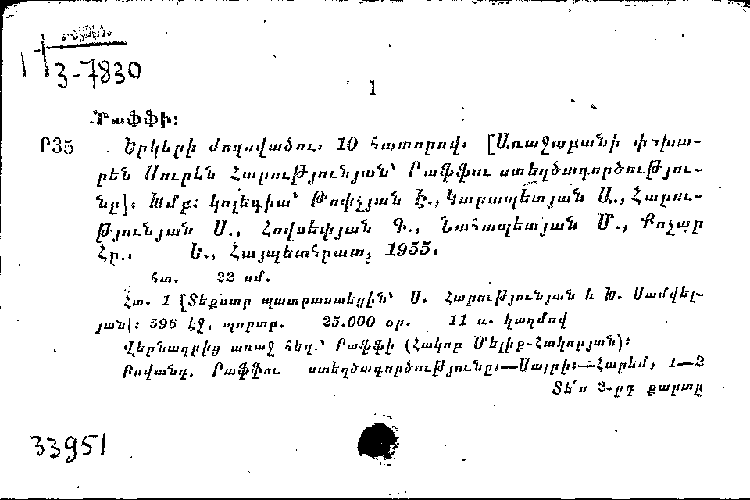 3-7830
1
Րաֆֆի:
Ր35 Երկերի ժողովածու. 10 հատորով. [Առաջաբանի փոխա-
րեն Սուրեն Հարությունյան՝ Րաֆֆու ստեղծագործությու-
նը]: Խմբ. կոլեգիա՝ Թոփչյան Է., Կարապետյան Ա., Հարու-
թյունյան Ս., Հովսեփյան Գ., Նահապետյան Մ., Քոչար
Հր., Ե., Հայպետհրատ, 1955.
հտ. 22 սմ.
Հտ. 1 [Տեքստը պատրաստեցին՝ Ս. Հարությունյան և Խ. Սամվել-
յան]: 596 էջ, պորտր. 25.000 օր. 11 ռ. կազմով
Վերնագրից առաջ հեղ.՝ Րաֆֆի (Հակոբ Մելիք-Հակոբյան):
Բովանդ. Րաֆֆու ստեղծագործությունը.—Սալբի.—Հարեմ, 1—2
Տե՛ս 2-րդ քարտը
33951